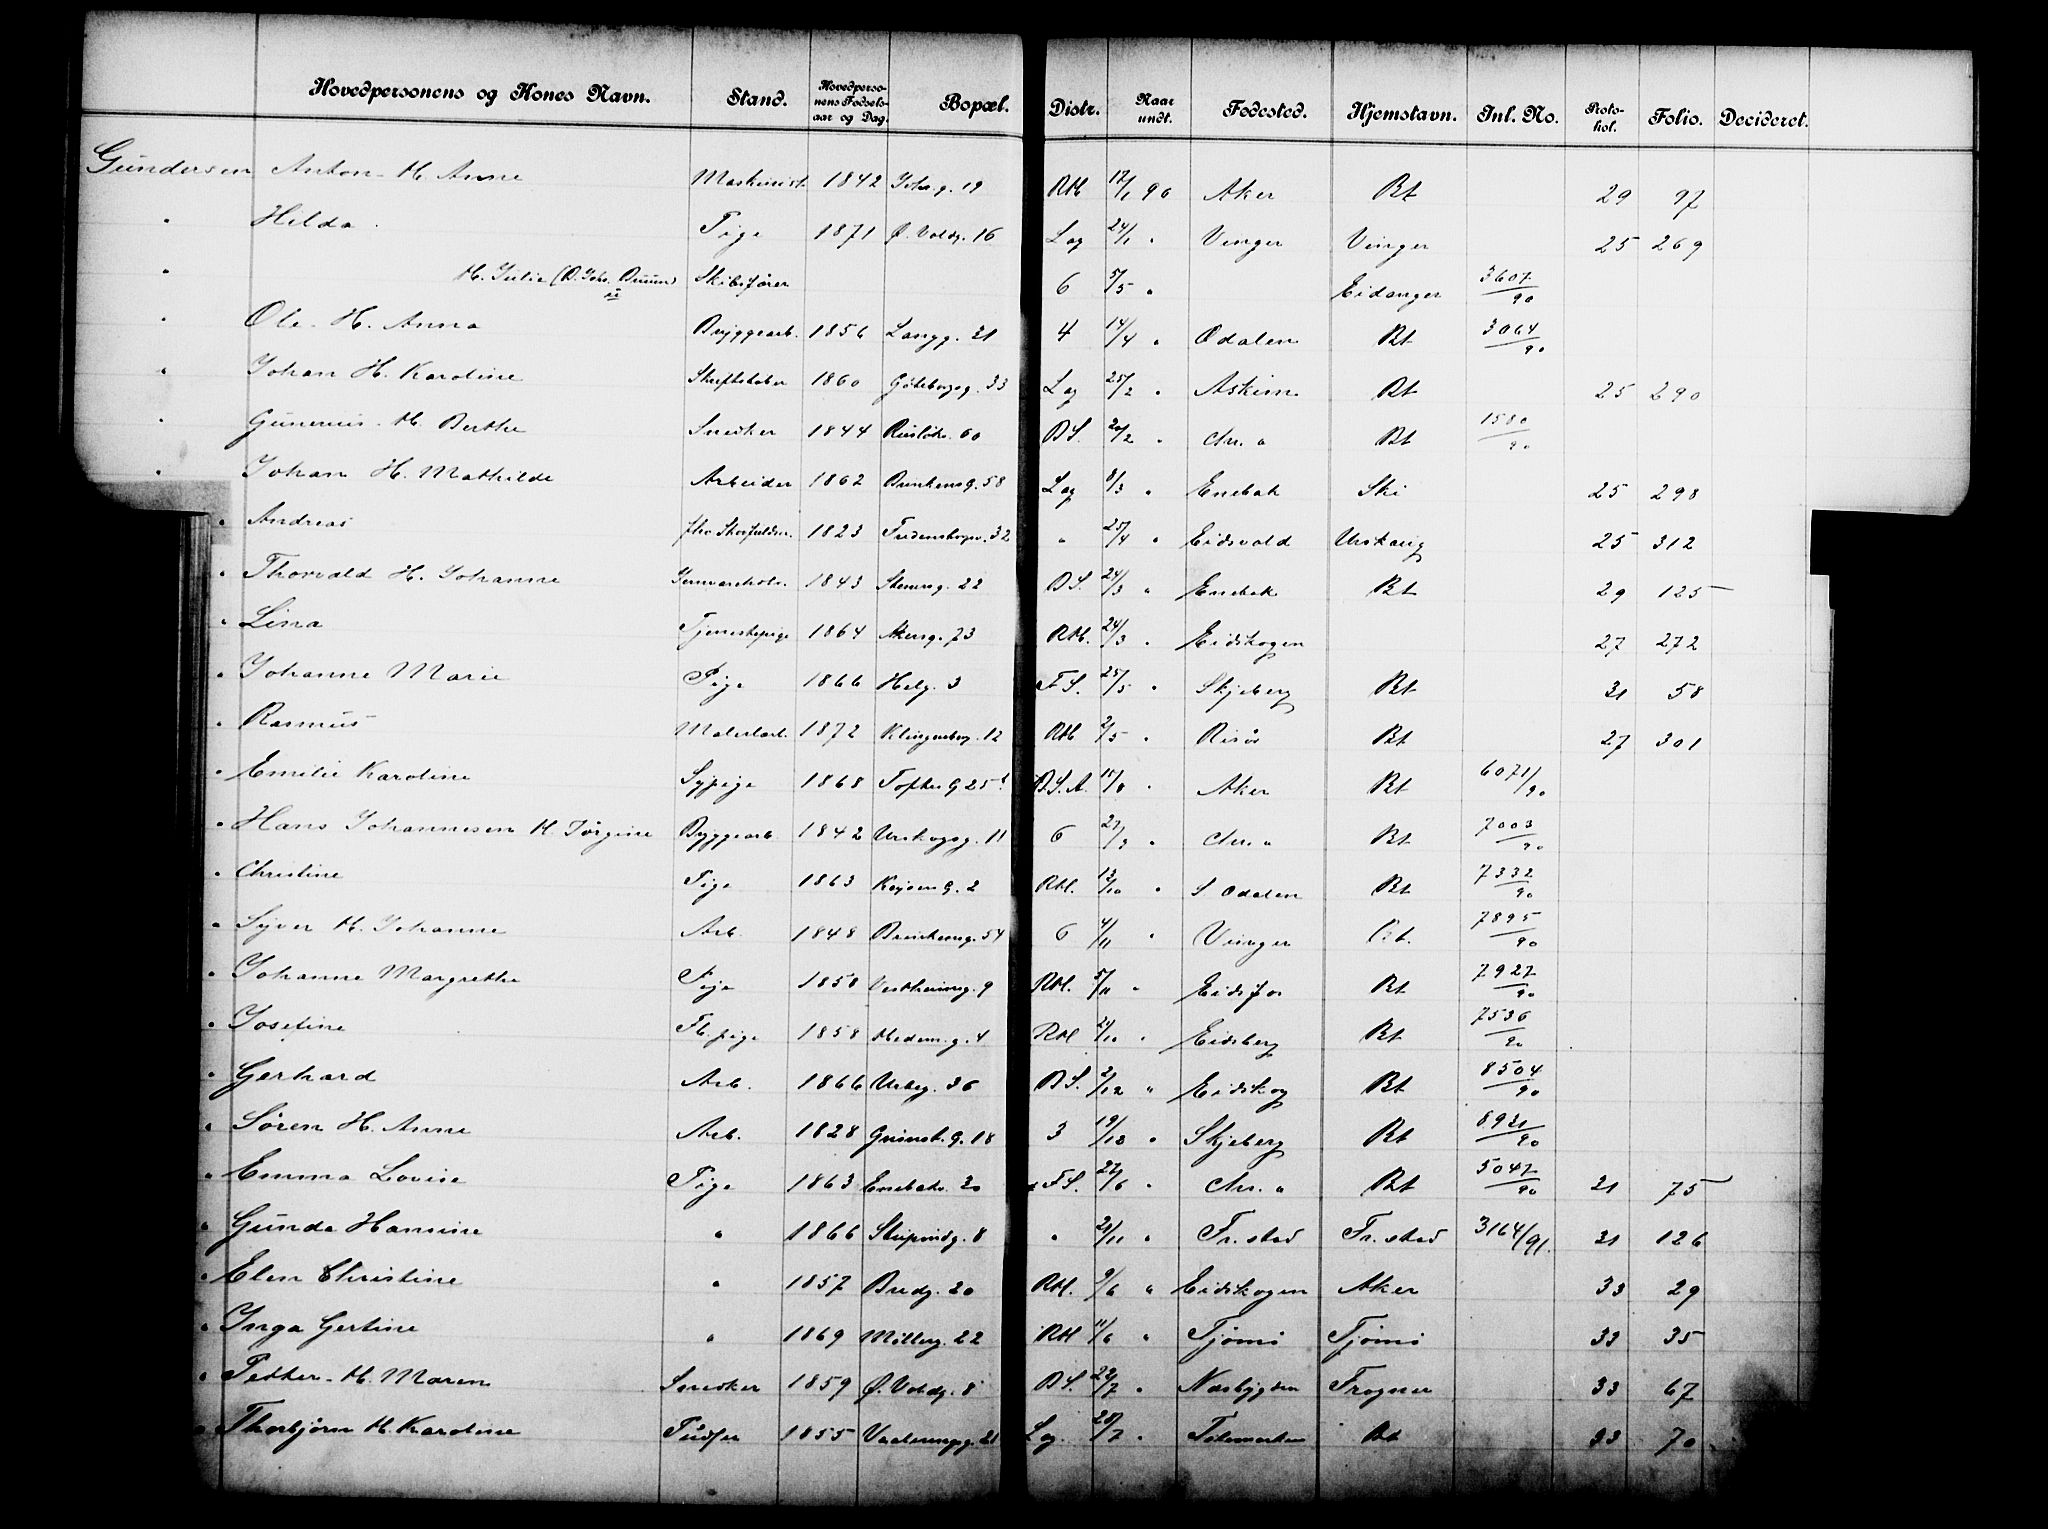 Hovedpersonens og Kones Navn. Stand. Hovedperso-nens Fødsels-aar og Dag. Bopæl. Distr. Naar undt. Fødested. Hjemstavn. Inl. No. Proto-kol. Folio. Decideret.
Gundersen Anton - H. Anne Maskinist 1842 19 RH 17/1 90 Aker Bt 29 97
" Hilda Pige 1871 Ø. Voldg. 16 Lag 24/1 " Vinger Vinger 25 269
" H. Julie Skibsfører 6 5/5 " Eidanger 3607/90
" Ole - H. Anna Bryggearb. 1856 Langg. 31 4 14/4 " Odalen Bt 3064/90
" Johan H. Karoline 1860 Göteborgsg. 33 Lag 25/2 " Askim Bt 25 290
" Gunerius - H. Berthe Snedker 1844 60 BS. 20/2 " Chr. a Bt 1580/90
" Johan H. Mathilde Arbeider 1862 Brinkensg. 58 Lag 8/3 " Enebak Ski 25 298
" Andreas 1823 Fredensborgv. 32 " 25/4 " Eidsvold Urskoug 25 312
" Thorvald H. Johanne 1843 Stensg. 22 BS. 24/3 " Enebak Bt 29 125
" Lina Tjenestepige 1864 Akersg. 73 RH. 24/3 " Eidskogen 27 272
" Johanne Marie Pige 1866 Helg. 3 FS. 25/5 " Skjeberg Bt 31 58
" Rasmus Malerlært. 1872 Klingenbg. 12 RH 2/5 " Risör Bt 27 301
" Emilie Karoline Sypige 1868 Toftes G 25 B.S.A. 11/8 " Aker Bt 6071/90
" Hans Johannesen H. Jørgine Byggearb. 1842 11 6 27/9 " Chr. a Bt 7003/90
" Christine Pige 1863 Keysers G. 2 RH. 13/10 " S Odalen Bt 7332/90
" Syver H. Johanne Arb. 1848 Brinkensg. 54 6 4/11 " Vinger Bt. 7895/90
" Johanne Margrethe Pige 1858 Vestheimsg. 9 RH. 5/11 " Bt 7927/90
" Josefine Fb. pige 1858 4 RH 21/10 " Eidsberg Bt 7536/90
" Gerhard Arb. 1866 Urteg. 36 BS. 2/12 " Eidskog Bt 8504/90
" Søren H. Anne Arb. 1828 Grimst. G. 18 3 19/12 " Skjeberg Bt 8931/90
" Emma Lovise Pige 1863 Enebakv. 30 FS. 27/6 " Chr. a Bt 5047/90 31 75
" Gunda Hansine " 1866 Stupindg. 8 " 21/11 " Fr. stad Fr. stad 3164/91. 31 126
" Elen Christine " 1857 Bredg. 20 RH. 9/6 " Eidskogen Aker 33 29
" Inga Gertine " 1869 Möllerg. 22 RH 11/6 " Tjømö Tjømö 33 35
" Petter - H. Maren Snedker 1859 Ø. Voldg. 8 BS. 22/7 " Næsbygden Frogner 33 67
" Thorbjørn H. Karoline Pudser 1855 Vaalerengg. 21 Lag. 28/7 " Telemarken Bt 33 70